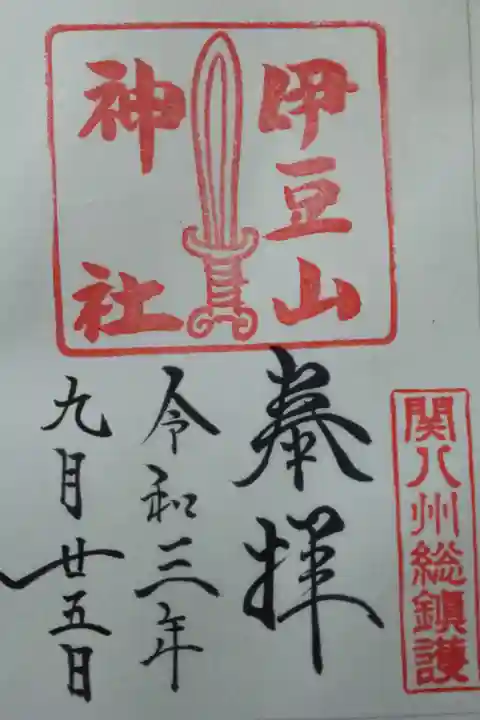 伊豆山
神社
関八州総鎮護
奉拝
令和三年
九月廿五日